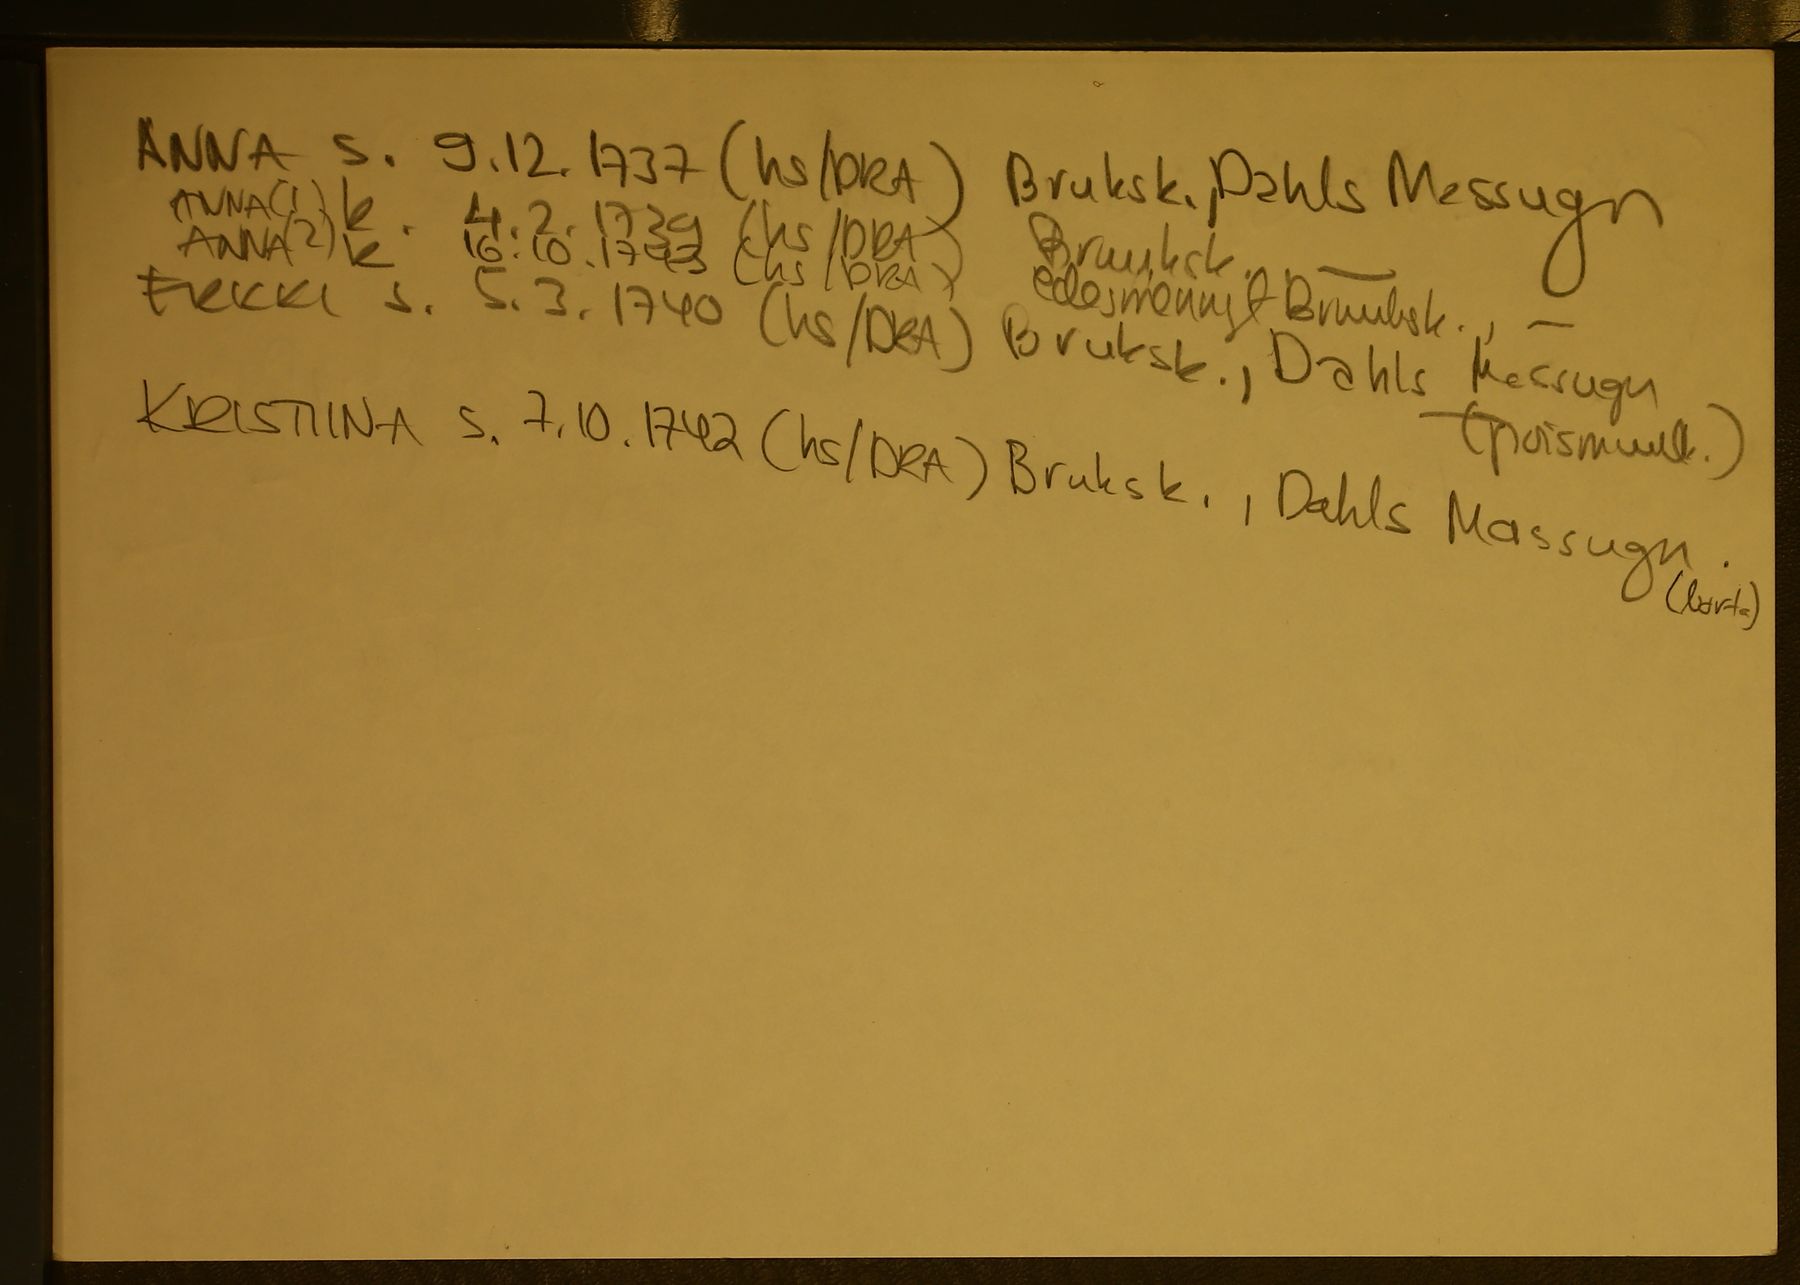 ANNA s. 9.12.1737 (hs/DRA) Bruksk., Dahls Massugn
ANNA(1) k. 4.2.1739 (hs/DRA) Bruuksk. —
ANNA(2) k 16.10.1743 (hs/DRA) edesmenny Bruuksk., —
ERKKI s. 5.3.1740 (hs/DRA) Bruksk., Dahls Massugn
(poismuutt.)
KRISTIINA s. 7.10.1742 (hs/DRA) Bruksk., Dahls Massugn.
(borta)